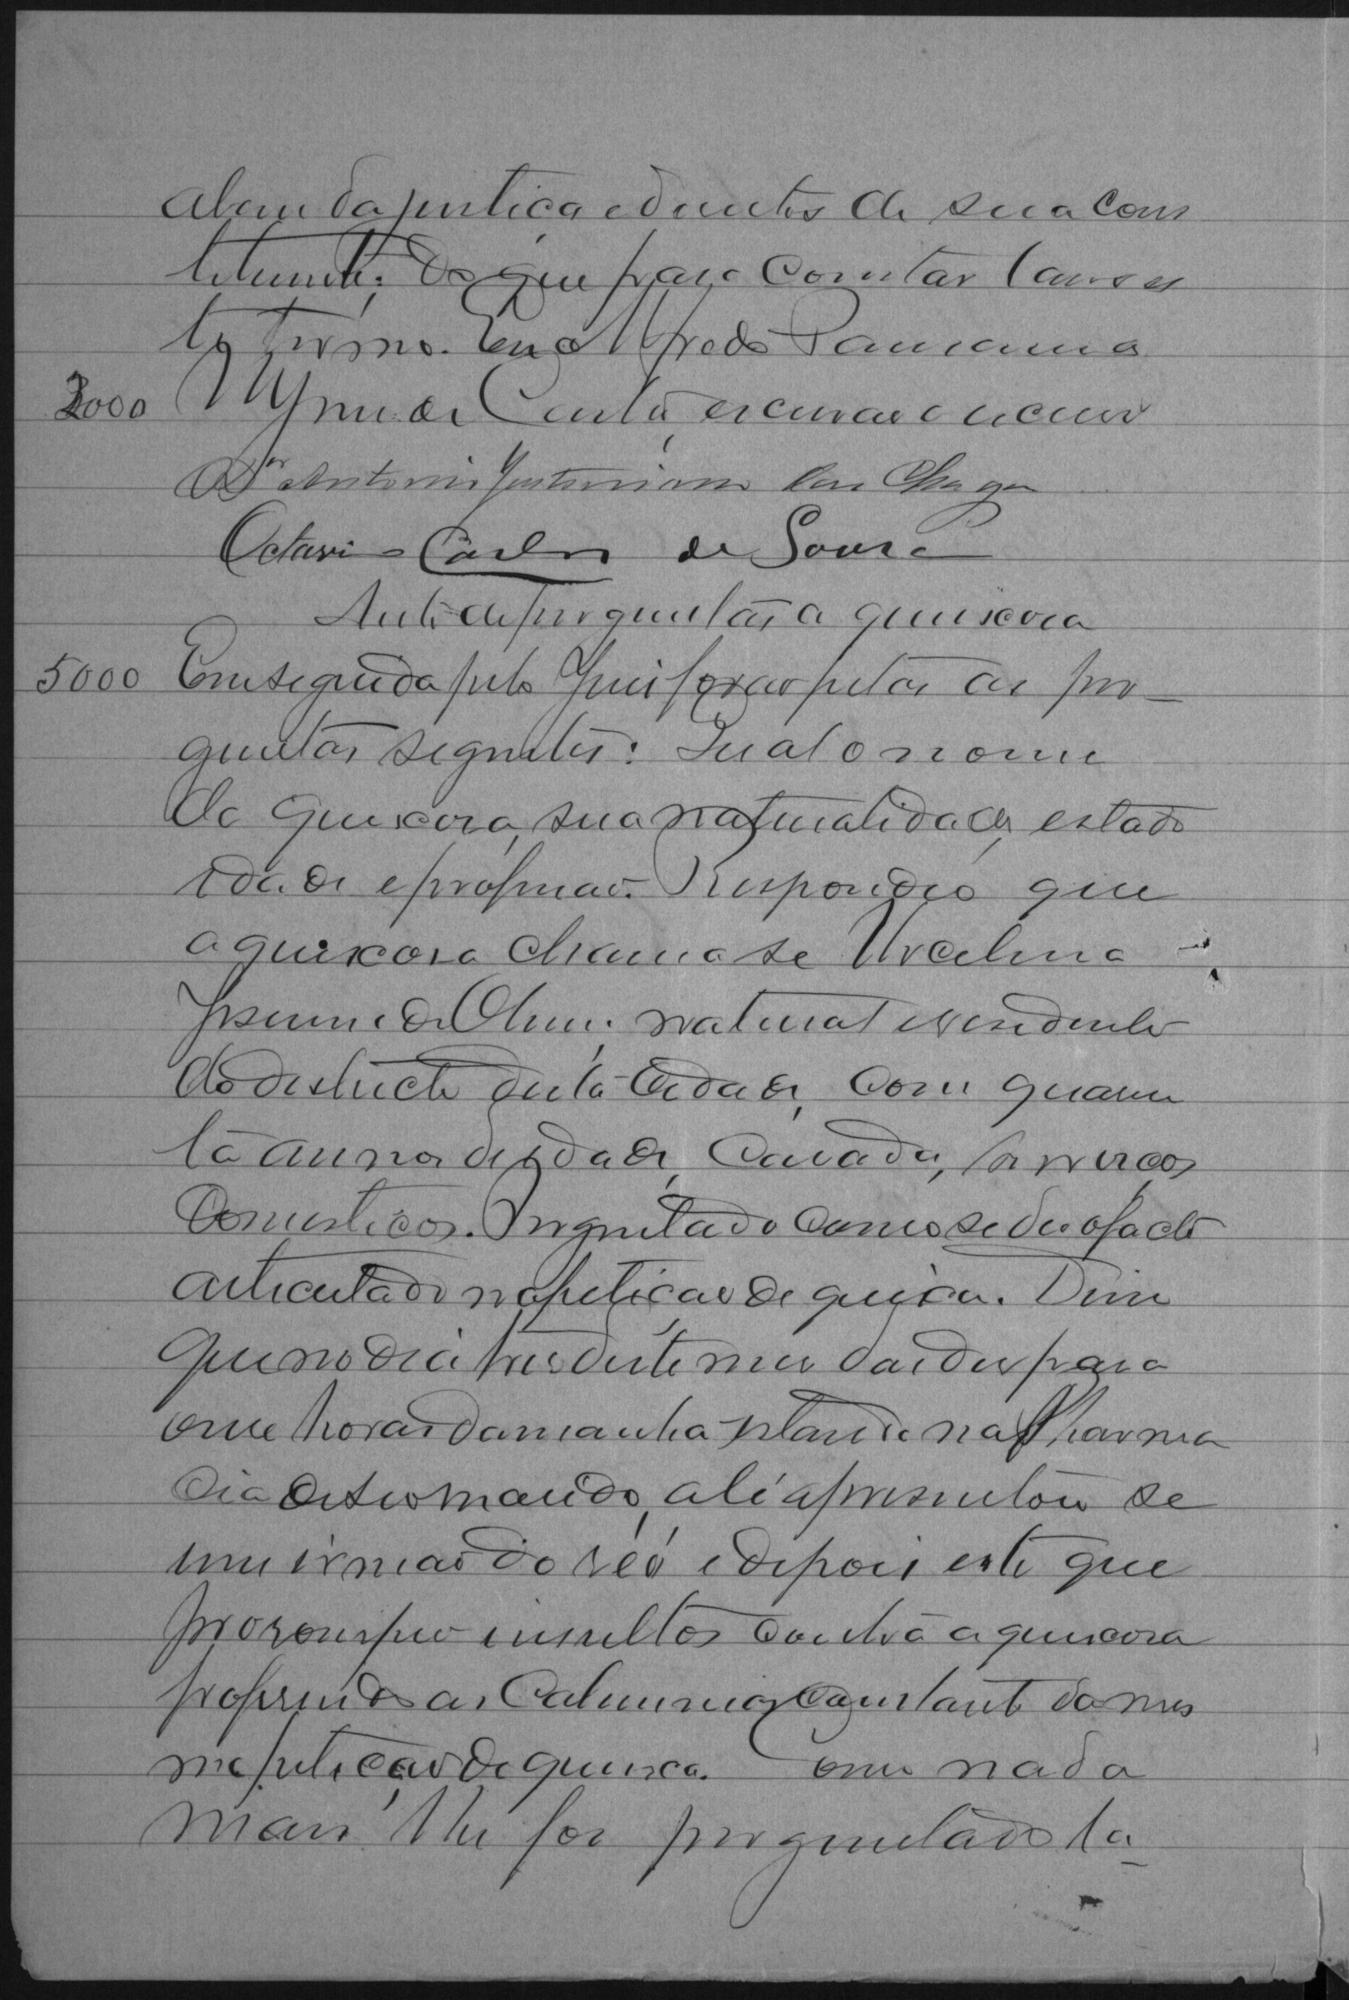 a bem da justiça e direitos de sua cons
tituinte; do que para constar lavro es
te termo. Eu Alfredo
3000 de Costa, escrivão o escrevi
Dr Antonio Justiniano das Chagas
Octavio Carlos de Souza
Auto de perguntas a queixosa
5000 Em seguida pelo Juis forão feitas as per-
guntas seguintes: Qual o nome
da queixosa, sua naturalidade, estado
idade e profissão. Respondeo que
a queixosa chama se Urcelina
natural e residente
do districto desta cidade, com quaren
ta annos de idade, casada, serviços
domesticos. Perguntado como se deo o facto
articulado na petição de queixa. Disse
que no dia tres deste mes das des para
onze horas da manhã estando na Pharma
cia de seo marido, ali apresentou se
um irmão do réo e depois este que
prorompeo insultos contra a queixosa
proferindo as calumnias constante da mes
ma petição de queixa. Como nada
mais lhe foi perguntado la